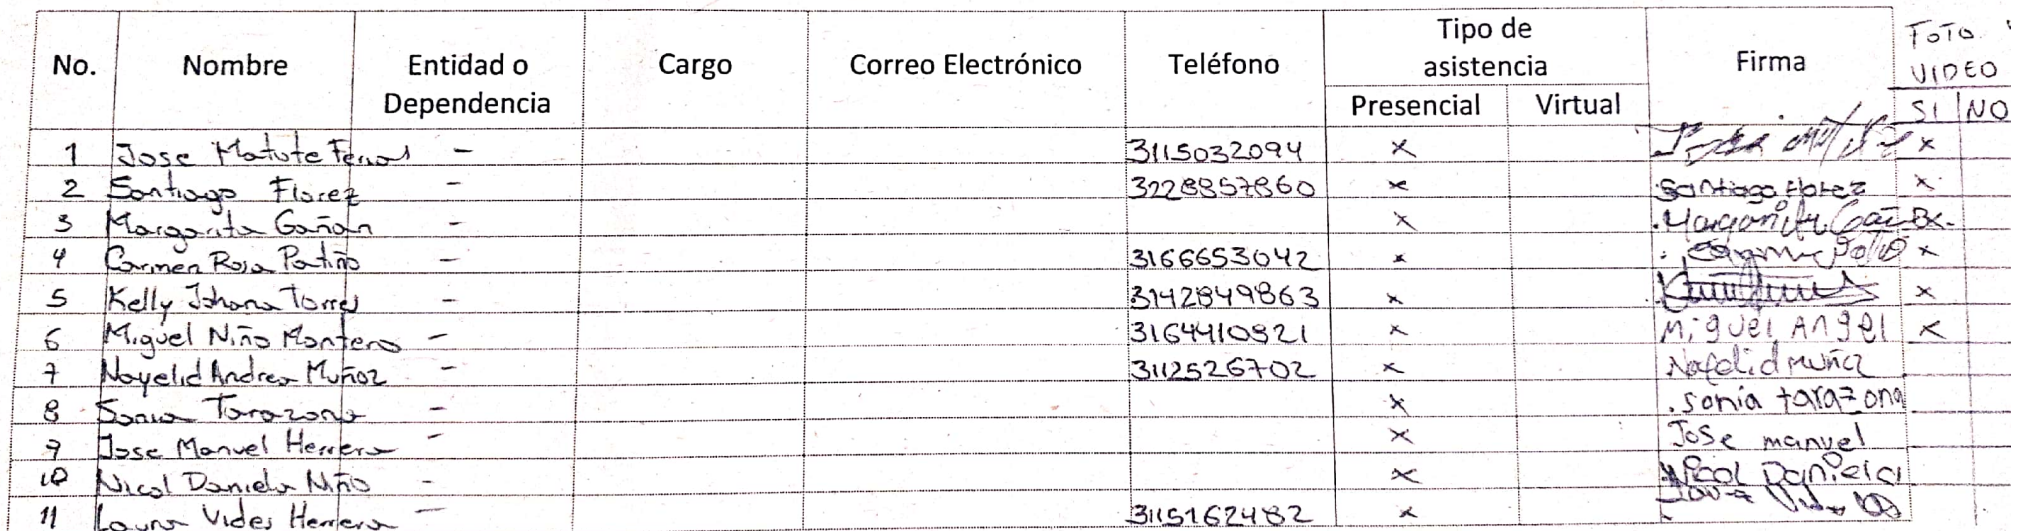 No. Nombre Entidad o Dependencia Cargo Correo Electrónico Teléfono Tipo de asistencia Presencial Virtual Firma FOTO VIDEO SI NO
1 Jose Matute - 3115032094 x x
2 Santiago Florez - 3228857860 x Santiago florez x
3 Margarita Gañán - x Margarita x
4 Carmen Rosa Patiño - 3166653042 x x
5 Kelly Johana Torres - 3142849863 x x
6 Miguel Niño Montero - 3164410821 x Miguel Angel x
7 Nayelid Andrea Muñoz - 3112526702 x
8 Sonia Tarazona - x sonia tarazona
9 Jose Manuel Herrera - x Jose manuel
10 Nicol Daniela Niño - x Nicol Daniela
11 Laura Vides Herrera - 3115162482 x